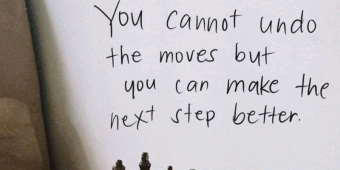 You cannot undo
the moves but
you can make the
next step better.